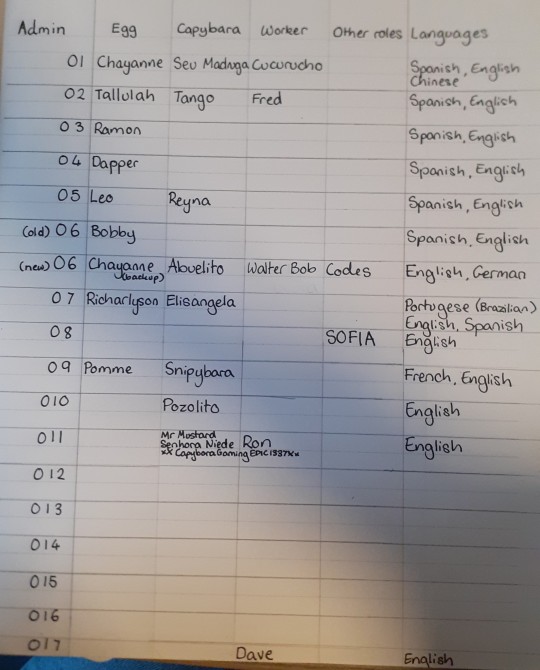 Admin Egg Capybara Worker Other roles Languages
01 Chayanne Seu Madruga Cucurucho Spanish, English
Chinese
02 Tallulah Tango Fred Spanish, English
03 Ramon Spanish, English
04 Dapper Spanish, English
05 Leo Reyna Spanish, English
(old) 06 Bobby Spanish, English
(new) 06 Chayanne Abuelito Walter Bob Codes English, German
(backup)
07 Richarlyson Elisangela Portugese (Brazilian)
English, Spanish
08 SOFIA English
09 Pomme Snipybara French, English
010 Pozolito English
011 Mr Mustard
Senhora Niede Ron English
xX CapybaraGaming EPIC1337Xx
012
013
014
015
016
017 Dave English